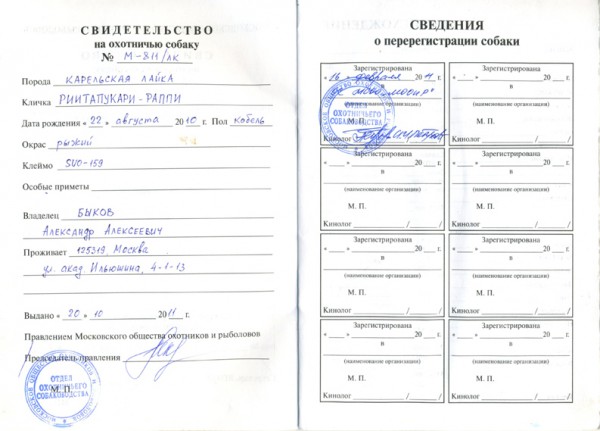 СВИДЕТЕЛЬСТВО
на охотничью собаку
№ М-811/лк
Порода КАРЕЛЬСКАЯ ЛАЙКА
Кличка РИИТАПУКАРИ-РАППИ
Дата рождения «22» августа 2010 г. Пол кобель
Окрас рыжий
Клеймо SVO-159
Особые приметы
Владелец БЫКОВ
АЛЕКСАНДР АЛЕКСЕЕВИЧ
Проживает 125319, МОСКВА
ул. акад. Ильюшина, 4-1-13
Выдано «20» 10 2011 г.
Правлением Московского общества охотников и рыболовов
Председатель правления
М. П.
ОТДЕЛ
ОХОТНИЧЬЕГО
СОБАКОВОДСТВА
СВЕДЕНИЯ
о перерегистрации собаки
Зарегистрирована
«16» февраля 2011 г.
в
М. П.
ОТДЕЛ
ОХОТНИЧЬЕГО
СОБАКОВОДСТВА
Кинолог
Зарегистрирована
« » 20 г.
в
(наименование организации)
М. П.
Кинолог / /
Зарегистрирована
« » 20 г.
в
(наименование организации)
М. П.
Кинолог / /
Зарегистрирована
« » 20 г.
в
(наименование организации)
М. П.
Кинолог / /
Зарегистрирована
« » 20 г.
в
(наименование организации)
М. П.
Кинолог / /
Зарегистрирована
« » 20 г.
в
(наименование организации)
М. П.
Кинолог / /
Зарегистрирована
« » 20 г.
в
(наименование организации)
М. П.
Кинолог / /
Зарегистрирована
« » 20 г.
в
(наименование организации)
М. П.
Кинолог / /